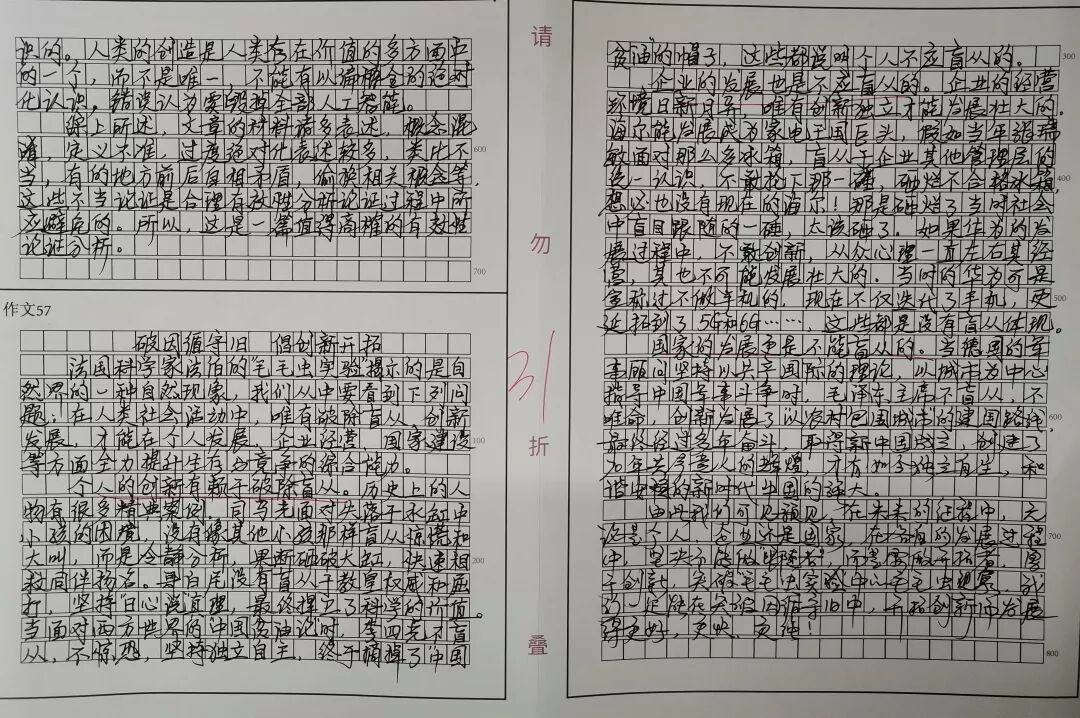 识的。人类的创造是人类存在价值的多方面中
的一个，而不是唯一，不能有以偏概全的绝对
化认识。错误认为要毁掉全部人工智能。
综上所述，文章的材料诸多表述，概念混
淆，定义不准，过度绝对化表述较多，类比不
当，有的地方前后自相矛盾，偷换相关概念等，
这些不当论证是合理有效性分析论证过程中所
应避免的。所以，这是一篇值得商榷的有效性
论证分析。
600
700
作文57
破因循守旧 倡创新开拓
法国科学家法伯的"毛毛虫实验"揭示的是自
然界的一种自然现象，我们从中要看到下列问
题：在人类社会活动中，唯有破除盲从、创新
发展，才能在个人发展、企业经营、国家建设
等方面全力提升生存与竞争的综合能力。
个人的创新有赖于破除盲从。历史上的人
物有很多精典案例，司马光面对失落于水缸中
小孩的困境，没有像其他小孩那样盲从惊慌和
大叫，而是冷静分析，果断砸破大缸，快速相
救同伴扬名。哥白尼没有盲从于教皇权威和压
打，坚持"日心说"真理，最终捍卫了科学的价值。
当面对西方世界的"中国贫油论"时，李四光不盲
从，不惊恐，坚持独立自主，终于摘掉了"中国
100
200
请
勿
31
折
叠
贫油"的帽子，这些都说明个人不应盲从的。
企业的发展也是不应盲从的。企业的经营
环境日新月异，唯有创新独立才能发展壮大的。
海尔能发展成为家电王国巨头，假如当年张瑞
敏面对那么多冰箱，盲从于企业其他管理层的
统一认识，不敢抡下那一锤，砸烂不合格冰箱，
想必也没有现在的海尔！那是砸烂了当时社会
中盲目跟随的一锤，太说砸了。如果华为的发
展过程中，不敢创新，从众心理一直左右其经
营，其也不可能发展壮大的。当时的华为可是
宣称过不做手机的，现在不仅迭代了手机，更
延拓到了5G和6G……，这些都是没有盲从体现。
国家的发展更是不能盲从的。当德国的军
事顾问坚持以共产国际的理论，以城市为中心
指导中国军事斗争时，毛泽东主席不盲从，不
唯命，创新发展了以农村包围城市的建国路线，
最终经过多年奋斗，取得新中国成立，创建了
70年关今喜人的辉煌，才有如今独立自主，和
谐安稳的新时代中国的强大。
由此我们可见预见，在未来的征程中，无
论是个人，企业还是国家，在各自的发展过程
中，坚决不能做"跟随者"，而是要做开拓者，勇
于创新，突破"毛毛虫实验"中心毛毛虫观察，我
们一定能在突破因循守旧中，开拓创新而发展
得更好，更快，更强！
300
400
500
600
700
800